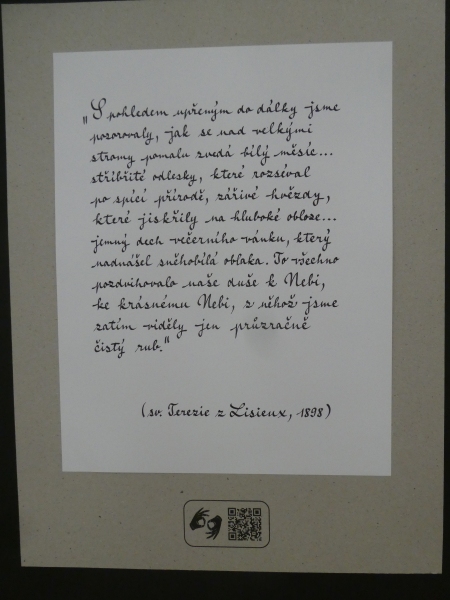 „S pohledem upřeným do dálky jsme
pozorovaly, jak se nad velkými
stromy pomalu zvedá bílý měsíc...
stříbřité odlesky, které rozséval
po spící přírodě, zářivé hvězdy,
které jiskřily na hluboké obloze...
jemný dech večerního vánku, který
nadnášel sněhobílá oblaka. To všechno
pozdvihovalo naše duše k Nebi,
ke krásnému Nebi, z něhož jsme
zatím viděly jen průzračně
čistý rub."
(sv. Terezie z Lisieux, 1898)